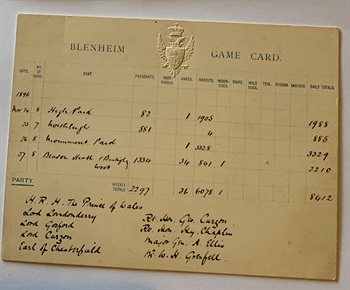 BLENHEIM GAME CARD.
DATE. NO. OF GUNS. BEAT PHEASANTS. PART- RIDGES. HARES. RABBITS. WOOD- COCK. SNIPE. WILD DUCK. TEAL. PIGEONS. VARIOUS DAILY TOTALS.
1896
Nov 24 8 High Park 82 1 1905 1988
25 7 North Leigh 881 4 885
26 8 Monument Park 1 3328 3329
27 8 Beacon Heath & Burleigh Wood 1334 34 841 1 2210
WEEKLY TOTALS 2297 36 6078 1 8412
PARTY.
H. R. H. The Prince of Wales
Lord Londonderry Rt. Hon. Geo. Curzon
Lord Gosford Rt. Hon. Hy. Chaplin
Lord Curzon Major Gen. A. Ellis
Earl of Chesterfield Mr. W. H. Grenfell